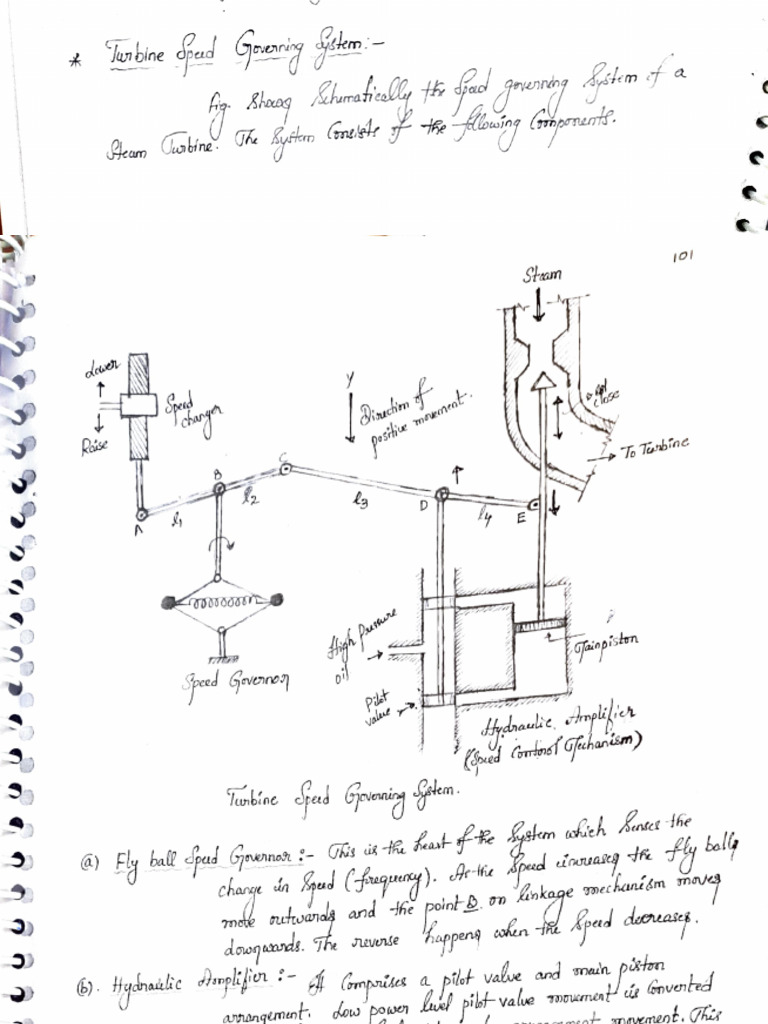 * Turbine Speed Governing System:-
Fig. Shows Schematically the Speed governing System of a
Steam Turbine. The System Consists of the following Components.
101
Steam
Lower
Raise
Speed
changer
Y
Direction of
positive movement.
close
To Turbine
A
l1
B
l2
C
l3
D
l4
E
High Pressure
oil
Pilot
valve
Main piston
Speed Governor
Hydraulic Amplifier
(Speed Control Mechanism)
Turbine Speed Governing System.
(a) Fly ball Speed Governor :- This is the heart of the System which Senses the
change in Speed (frequency). As the Speed increases the fly balls
move outwards and the point B on linkage mechanism moves
downwards. The reverse happens when the Speed decreases.
(b). Hydraulic Amplifier :- It Comprises a pilot valve and main piston
arrangement. Low power level pilot valve movement is Converted
movement. This